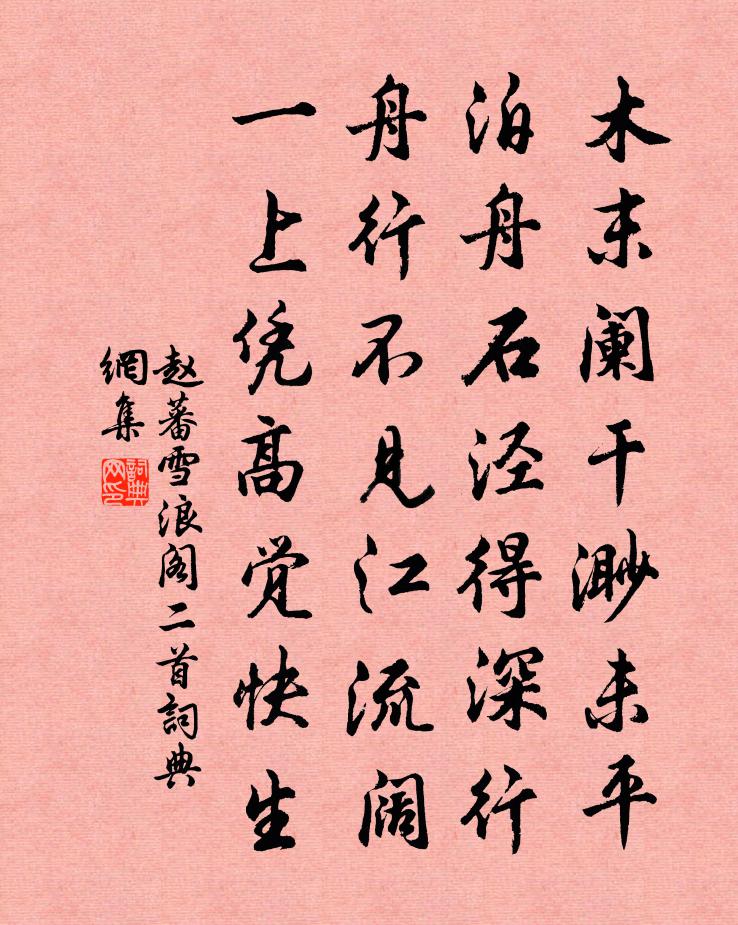 木末阑干渺未平
泊舟石泾得深行
舟行不见江流阔
一上凭高觉快生
赵蕃雪浪阁二首詞典
網集
詞典
网印